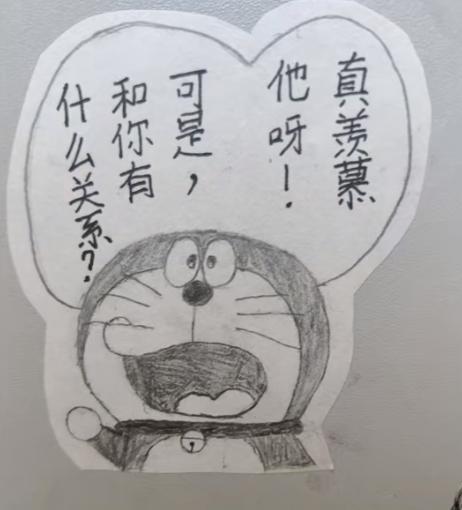 真羡慕
他呀！
可是，
和你有
什么关系？